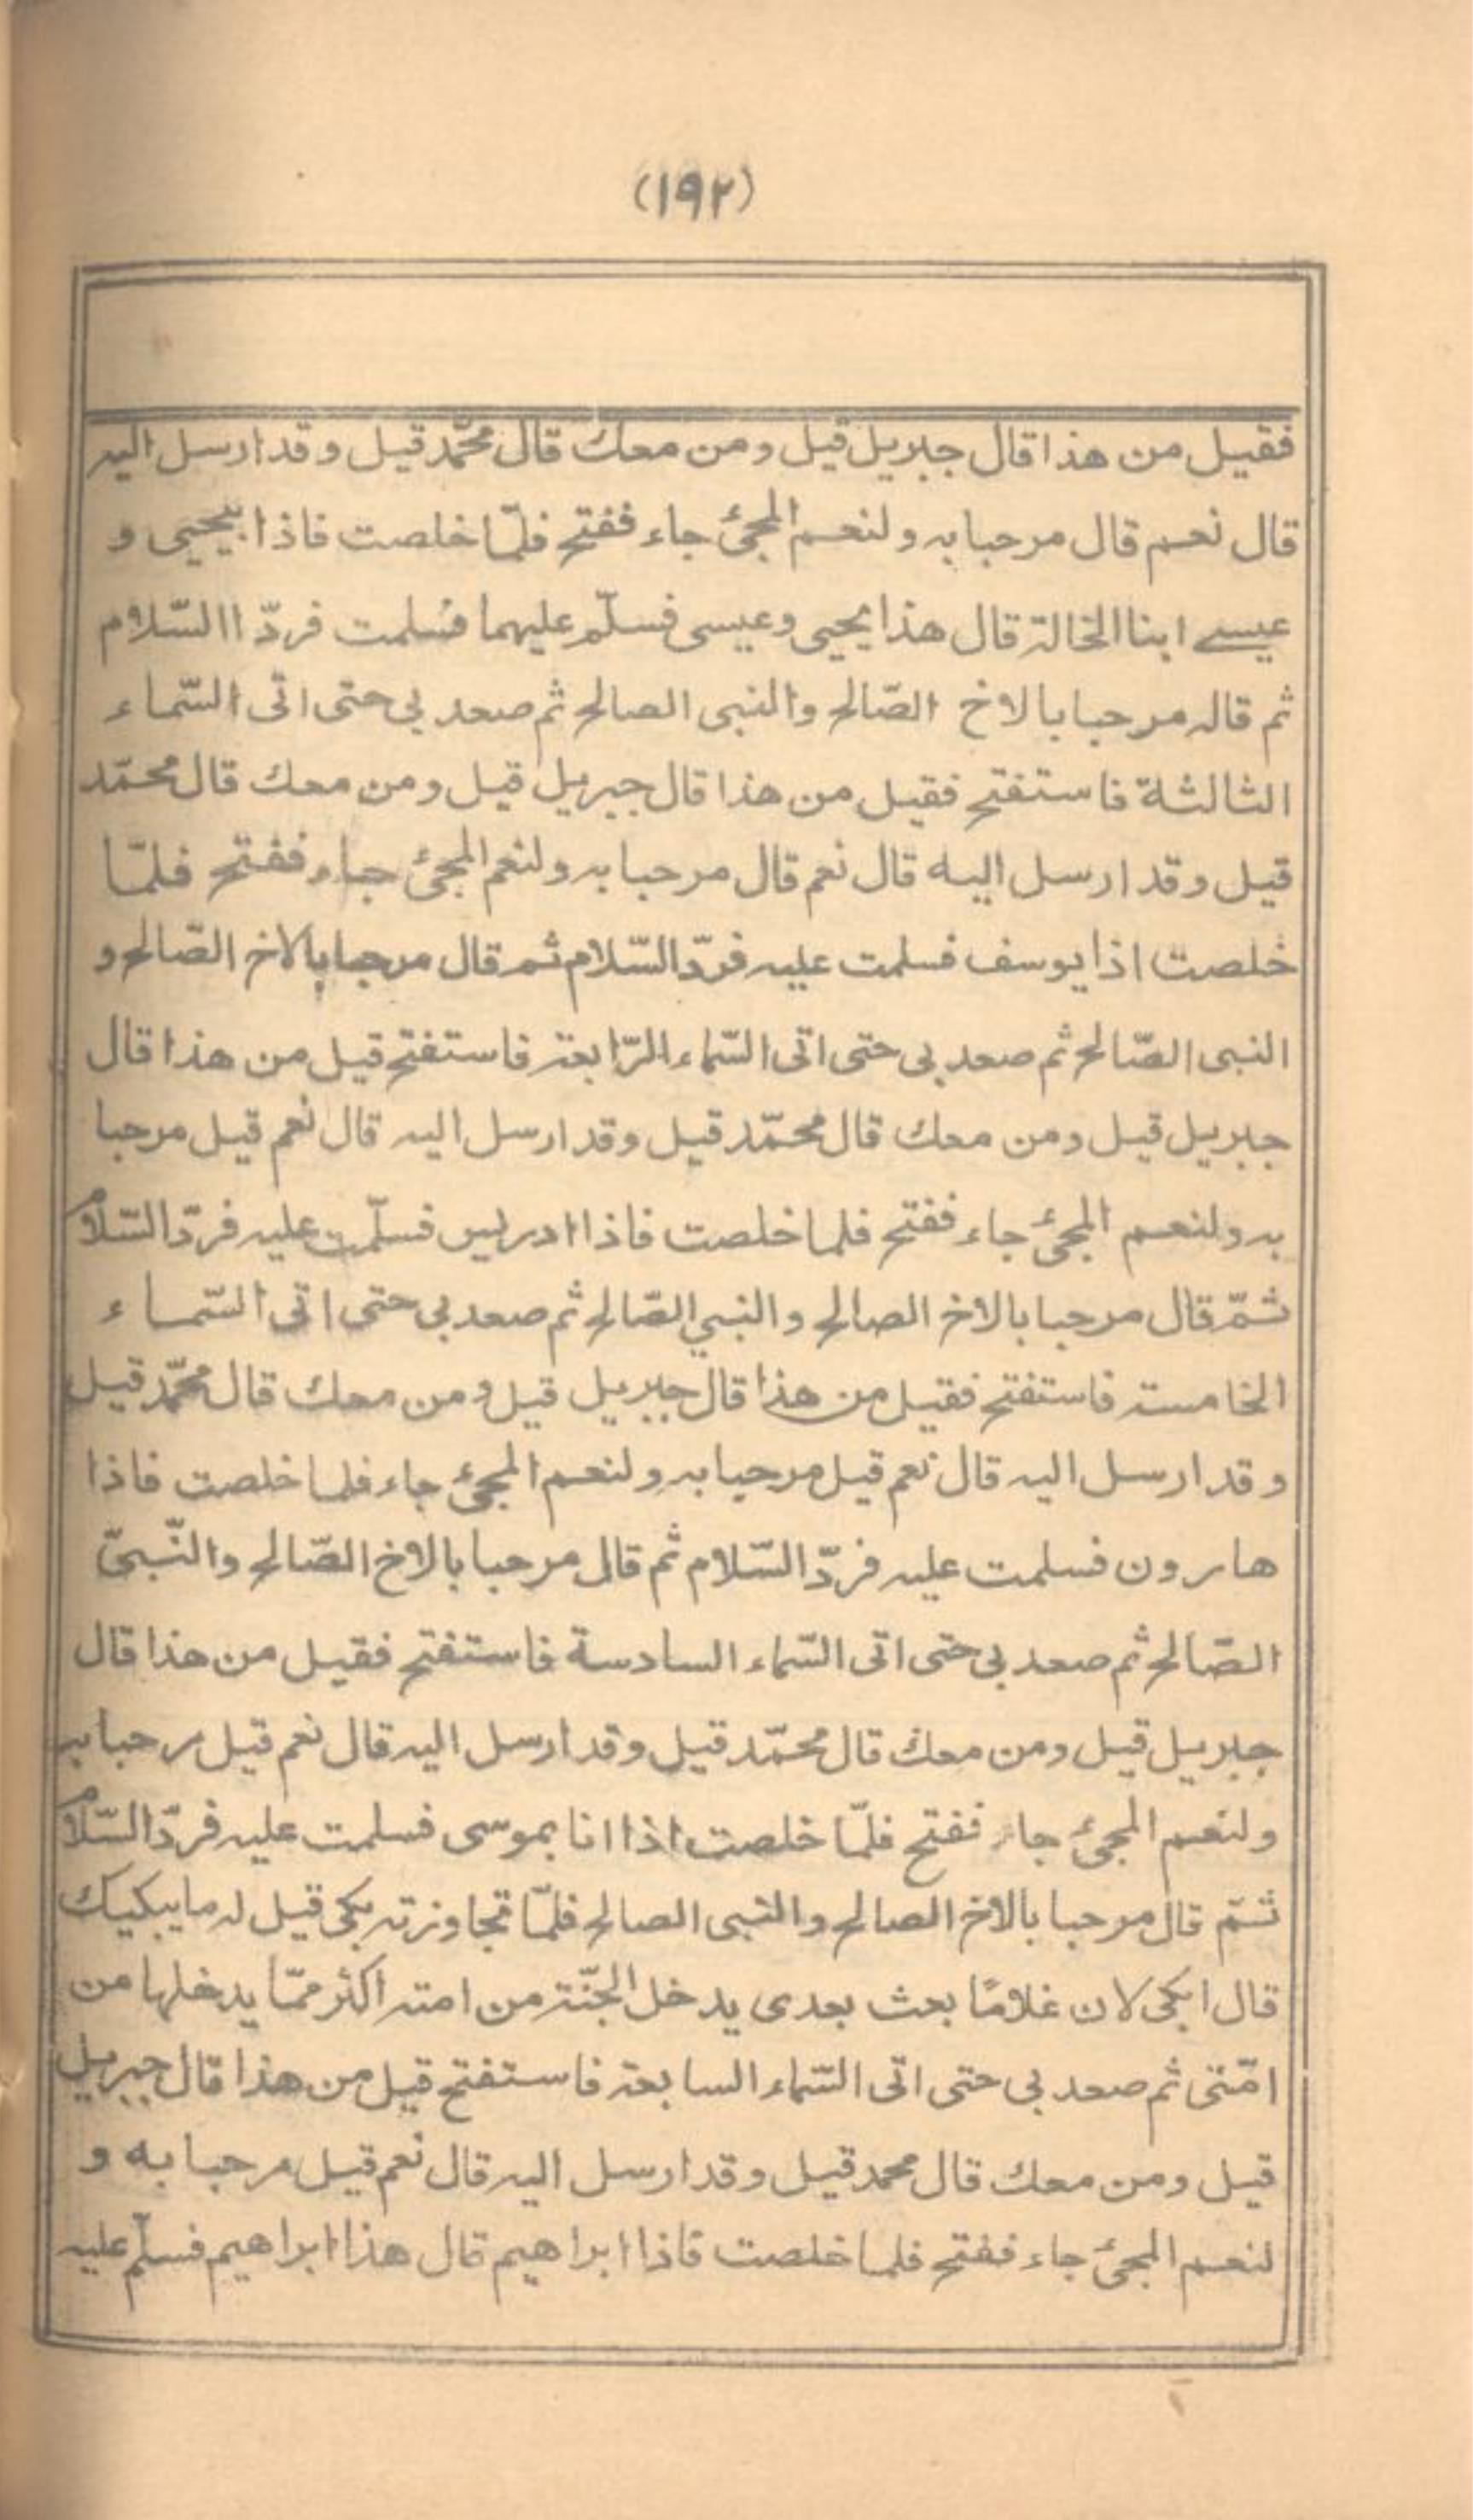 (۱۹۲)
فقيل من هذا قال جبريل قيل ومن معك قال محمّد قيل وقد ارسل اليه
قال نعم قال مرحبا به ولنعم المجئ جاء ففتح فلمّا خلصت فاذا بيحيى و
عيسے ابنا الخالة قال هذا يحيى وعيسى فسلّم عليهما فسلمت فردّ االسّلام
ثم قاله مرحبا بالاخ الصّالح والنبى الصالح ثم صعد بي حتى اتى السّماء
الثالثة فاستفتح فقيل من هذا قال جبريل قيل ومن معك قال محمّد
قيل وقد ارسل اليه قال نعم قال مرحبا به ولنعم المجئ جاء ففتح فلمّا
خلصت اذا يوسف فسلمت عليه فردّ السّلام ثم قال مرحبا بالاخ الصّالح و
النبى الصّالح ثم صعد بى حتى اتى السّماء الرّابعة فاستفتح قيل من هذا قال
جبريل قيل ومن معك قال محمّد قيل وقد ارسل اليه قال نعم قيل مرحبا
به ولنعم المجئ جاء ففتح فلما خلصت فاذا ادريس فسلّمت عليه فردّ السّلام
ثمّ قال مرحبا بالاخ الصالح والنبي الصّالح ثم صعد بى حتى اتى السّماء
الخامسة فاستفتح فقيل من هذا قال جبريل قيل ومن معك قال محمّد قيل
وقد ارسل اليه قال نعم قيل مرحبا به ولنعم المجئ جاء فلما خلصت فاذا
هارون فسلمت عليه فردّ السّلام ثم قال مرحبا بالاخ الصّالح والنّبىّ
الصّالح ثم صعد بى حتى اتى السّماء السادسة فاستفتح فقيل من هذا قال
جبريل قيل ومن معك قال محمّد قيل وقد ارسل اليه قال نعم قيل مرحبا به
ولنعم المجئ جاء ففتح فلمّا خلصت اذا انا بموسى فسلمت عليه فردّ السّلام
ثمّ قال مرحبا بالاخ الصالح والنبى الصالح فلمّا تجاوزته بكى قيل له مايبكيك
قال ابكى لان غلامًا بعث بعدى يدخل الجنّة من امته اكثر ممّا يدخلها من
امّتى ثم صعد بى حتى اتى السّماء السابعة فاستفتح قيل من هذا قال جبريل
قيل ومن معك قال محمد قيل وقد ارسل اليه قال نعم قيل مرحبا به و
لنعم المجئ جاء ففتح فلما خلصت فاذا ابراهيم قال هذا ابراهيم فسلّم عليه